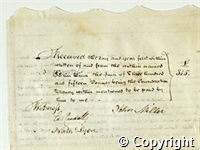 Received the day and year first within
written of and from the within named
the Sum of Three hundred
and fifteen Pounds being the Consideration
Money within mentioned to be paid by
him to me
£
315.
Witness
John Miller